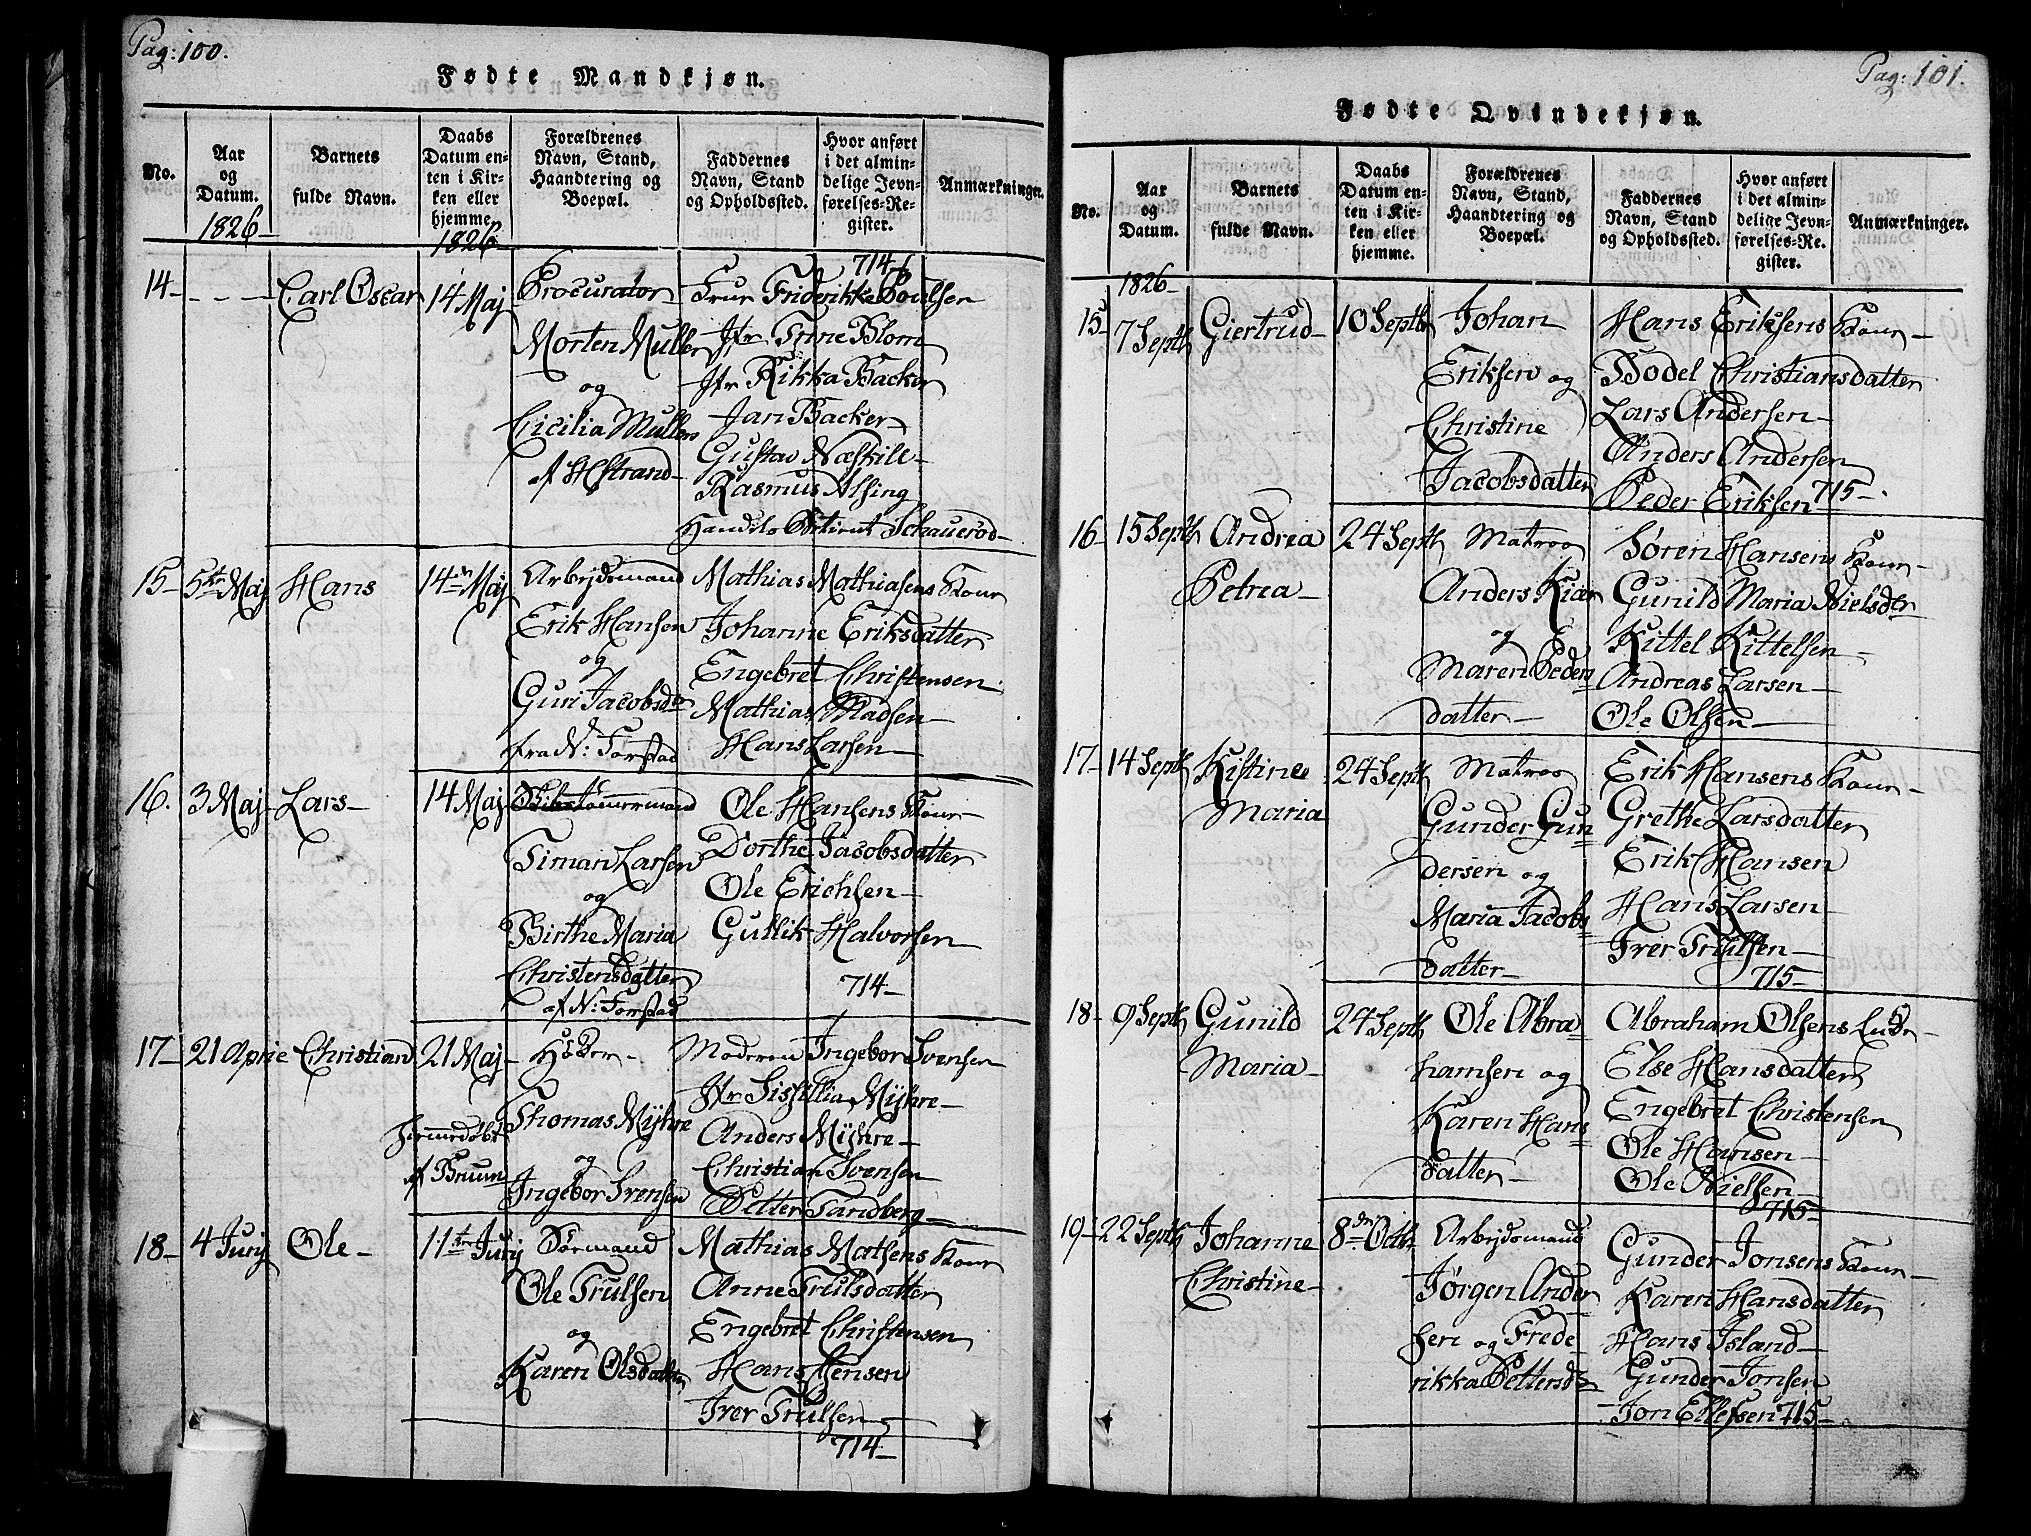 Pag: 100.
Fødte Mandkjøn.
No.
Aar
og
Datum.
1826
Barnets
fulde Navn.
Daabs
Datum en-
ten i Kir-
ken eller
hjemme.
1826
Forældrenes
Navn, Stand,
Haandtering og
Boepæl.
Faddernes
Navn, Stand
og Opholdssted.
Hvor anført
i det almin-
delige Jevn-
førelses-Re-
gister.
Anmærkninger.
14 - - - Carl Oscar 14 Maj
Procurator
Morten Muller
og
Cicilia Mullers
af Hstrand
714
Frue Friderikke Poulsen
Jfr Trine Blom
Jfr Rikka Backer
Jan Backer
Gustav Næskill
Rasmus Alsing
Handels Schauerød
15 5te Maj Hans 14de Maj
Arbejdsmand
Erik Hansen
og
Guri Jacobsdr
fra N: Forstad
Mathias Mathiasens Kour
Johanne Eriksdatter
Engebret Christensen
Mathias Madsen
Hans Larsen
16. 3 Maj Lars 14 Maj
Timan Larsen
og
Birthe Maria
Christensdatter
af N: Forstad
Ole Hansens Kour
Dorthe Jacobsdatter
Ole Erichsen
Gullik Halvorsen
714
17 21 Aprie Christian 21 Maj
hjemmedøbt
af Bruun
Høker
Thomas Myhre
og
Ingebor Svensen
Moderen Ingebor Svensen
Jfr Sissillia Myhre
Anders Myhre
Christian Svensen
Petter Sandberg
18 4 Junj Ole 11te Junj
Sørmand
Ole Trulsen
og
Karen Olsdatter
Mathias Matsens Kour
Anne Trulsdatter
Engebret Christensen
Hans Jensen
Iver Trulsen
714
Pag: 101.
Fødte Qvindekjøn.
No.
Aar
og
Datum.
1826
Barnets
fulde Navn.
Daabs
Datum en-
ten i Kir-
ken eller
hjemme.
Forældrenes
Navn, Stand,
Haandtering og
Boepæl.
Faddernes
Navn, Stand
og Opholdssted.
Hvor anført
i det almin-
delige Jevn-
førelses-Re-
gister.
Anmærkninger.
15 7 Septb Giertrud 10 Septb
Johan
Eriksen og
Christine
Jacobsdatter
Hans Eriksens Kour
Bodel Christiansdatter
Lars Andersen
Anders Andersen
Peder Eriksen 715
16 15 Septb Andrea
Petrea
24 Septb
Matros
Anders Kiær
og
Maren Peders
datter
Søren Hansens Kour
Gunild Maria Nielsdtr
Kittel Kittelsen
Andreas Larsen
Ole Olsen
17 14 Septb Kistine
Maria
24 Septb
Matros
Gunder Gun
dersen og
Maria Jacobs
datter
Erik Hansens Kour
Grethe Larsdatter
Erik Hansen
Hans Larsen
Iver Trulsen
715
18 9 Septb Gunild
Maria
24 Septb
Ole Abra
hamsen og
Karen Hans
datter
Abraham Olsens
Else Hansdatter
Engebret Christensen
Ole Hansen
Ole Nielsen
715
19 22 Septb Johanne
Christine
8de Octb
Arbejdsmand
Jørgen Ander
sen og Frede
rikka Pettersd
Gunder Jonsens Kour
Karen Hansdatter
Hans Island
Gunder Jonsen
Jon Ellefsen 715